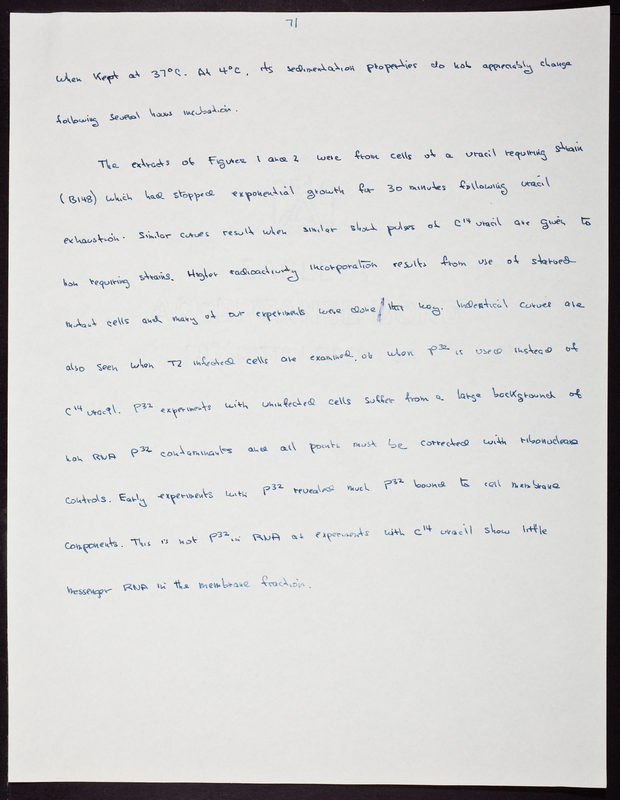 71
when kept at 37°C. At 4°C, its sedimentation properties do not appreciably change
following several hours incubation.
The extracts of Figures 1 and 2 were from cells of a uracil requiring strain
(B148) which had stopped exponential growth for 30 minutes following uracil
exhaustion. Similar curves result when similar short pulses of C14 uracil are given to
non requiring strains. Higher radioactivity incorporation results from use of starved
mutant cells and many of our experiments were done this way. Indentical curves are
also seen when T2 infected cells are examined, or when P32 is used instead of
C14 uracil. P32 experiments with uninfected cells suffer from a large background of
non RNA P32 contaminants and all points must be corrected with ribonuclease
controls. Early experiments with P32 revealed much P32 bound to cell membrane
components. This is not P32 in RNA as experiments with C14 uracil show little
messenger RNA in the membrane fraction.